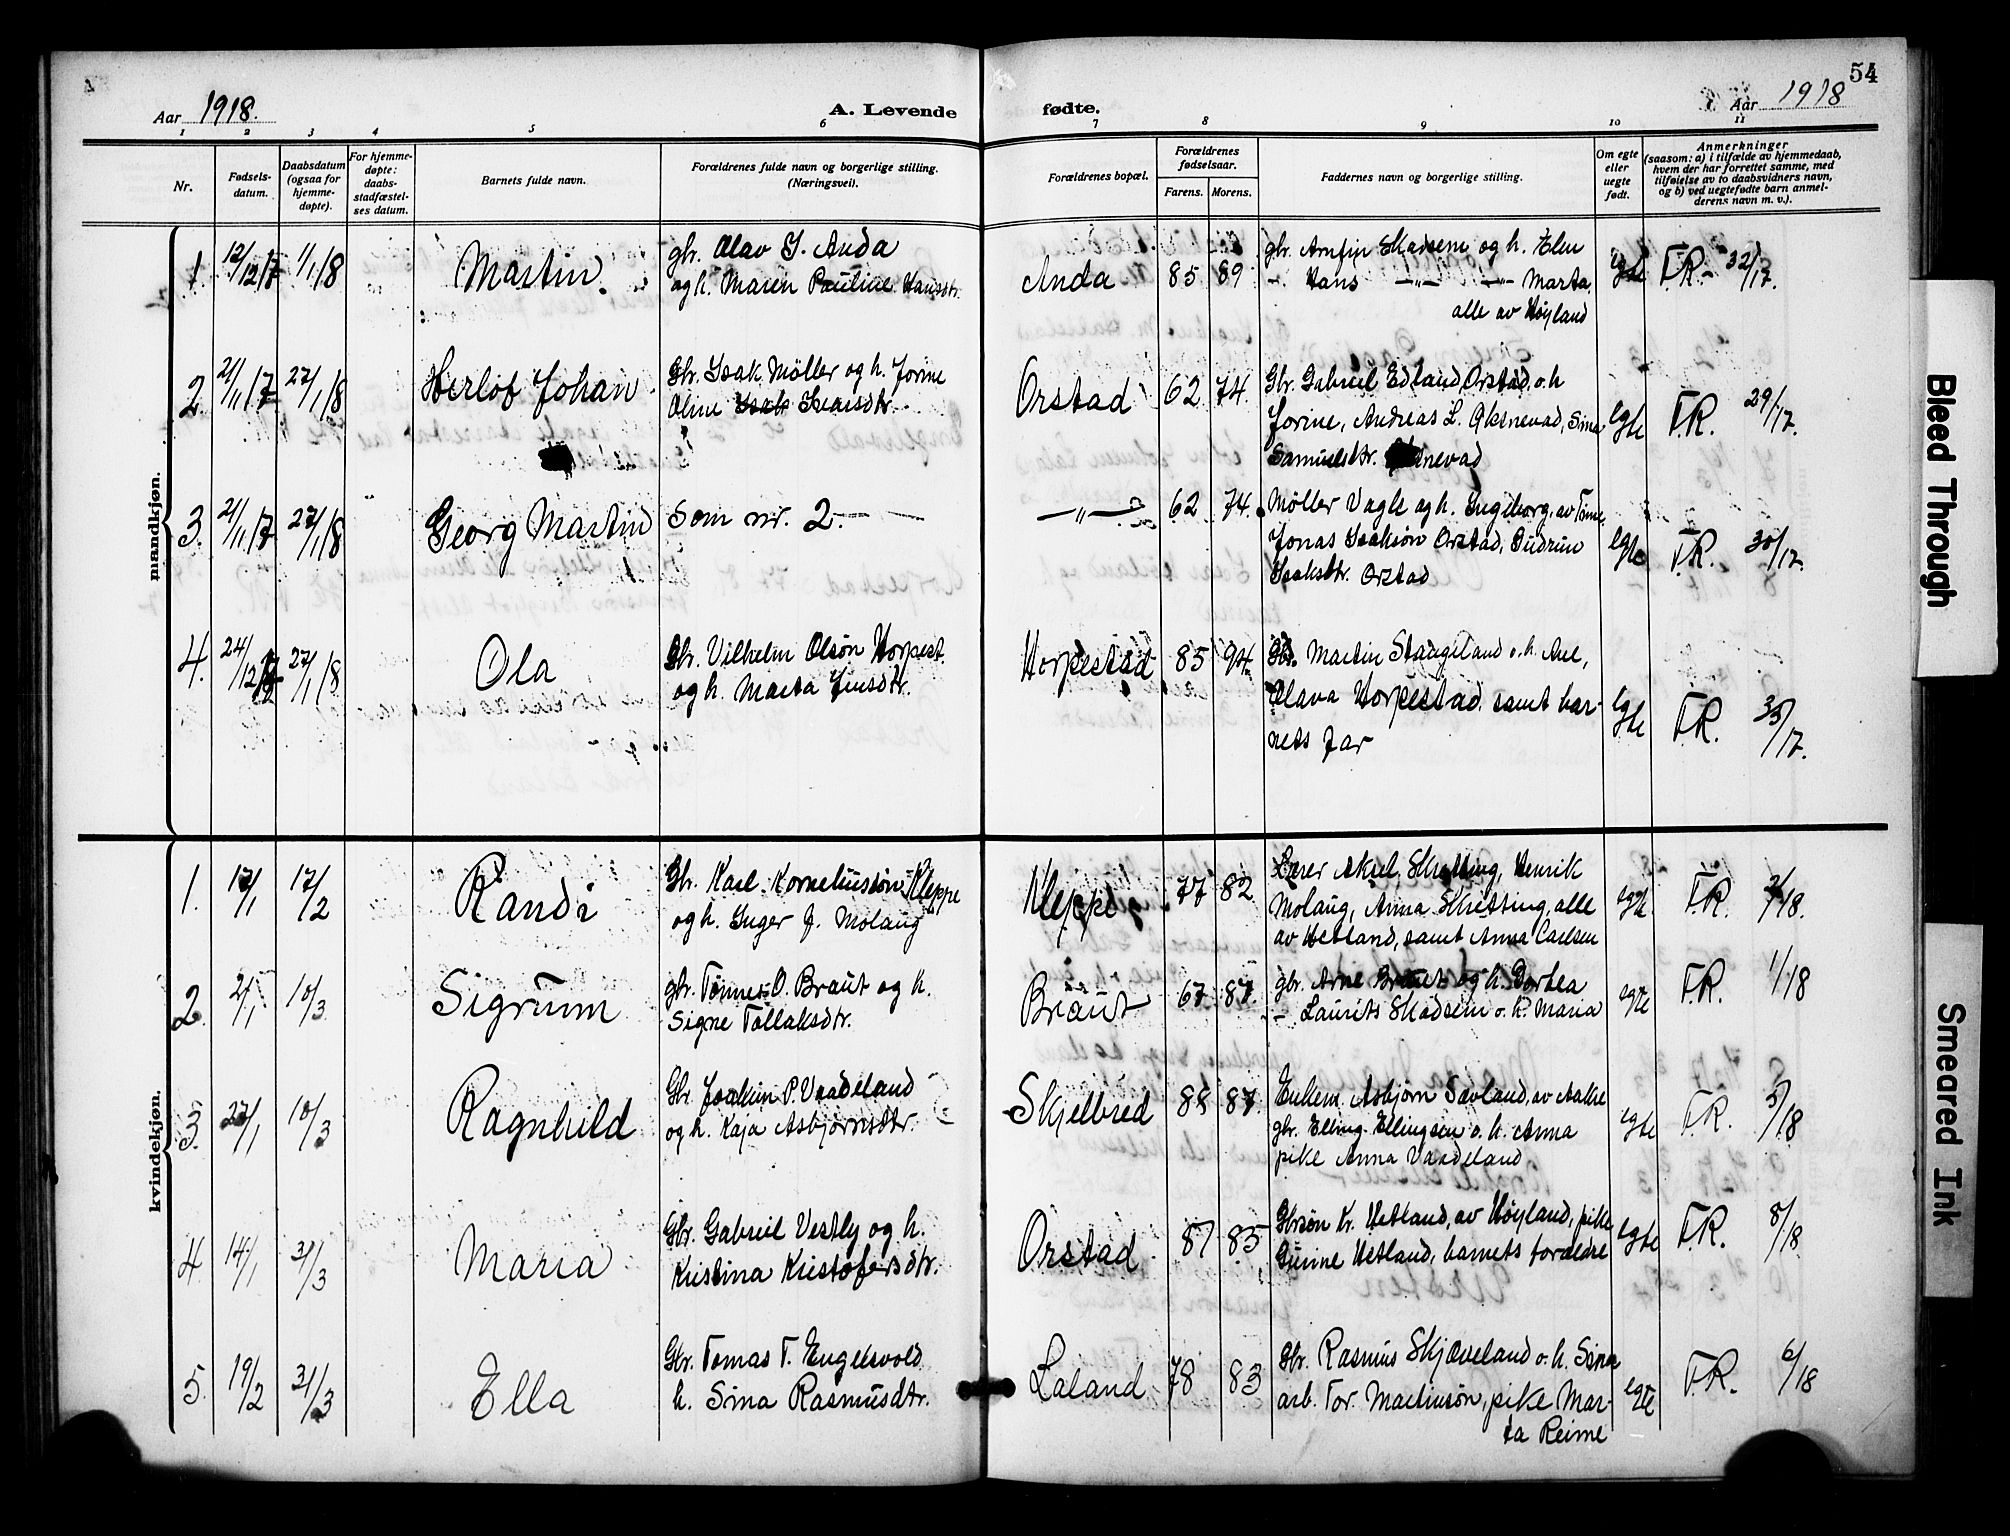 54
Aar 1918.
A. Levende fødte.
Aar 1918
1 2 3 4 5 6 7 8 9 10 11
Nr.
Fødsels-
datum.
Daabsdatum
(ogsaa for
hjemme-
døpte).
For hjemme-
døpte:
daabs-
stadfæstel-
ses datum.
Barnets fulde navn.
Forældrenes fulde navn og borgerlige stilling.
(Næringsvei).
Forældrenes bopæl.
Forældrenes
fødselsaar.
Farens. Morens.
Faddernes navn og borgerlige stilling.
Om egte
eller
uegte
født.
Anmerkninger
(saasom: a) i tilfælde av hjemmedaab,
hvem der har forrettet samme, med
tilføielse av to daabsvidners navn,
og b) ved uegtefødte barn anmel-
derens navn m. v.).
mandkjøn.
1. 12/12 17 1/1 18 Martin. gbr. Olav S. Anda
og h. Maren Pauline Hansdtr.
Anda 85 89 gbr. Arnfin Skadsem og h. Elen
- Hans —"— —"— Marta,
alle av Høyland
egte F.R. - 32/17.
2. 21/11 17 27/1 18 Herlof Johan Gbr. Isak Møller og h. Jorine
Oline Isak Ivarsdtr.
Orstad 62 74. Gbr. Gabriel Edland Orstad o. h
Jorine, Andreas L. Øksnevad, Sina
Samuelsdtr. Øksnevad
egte F.R. 29/17.
3. 21/11 17 27/1 18 Georg Martin Som nr. 2.
—"— 62 74. Møller Vagle og h. Ingeborg, av Time,
Jonas Isaksøn Orstad, Gudrun
Isaksdtr. Orstad
egte F.R. 30/17.
4. 24/12 17 27/1 18 Ola Gbr. Vilhelm Olsøn Horpest.
og h. Marta Jensdtr.
Horpestad 85 94. Gbr. Martin Stangeland o. h. Ane,
Olava Horpestad, samt bar-
nets far
egte F.R. 35/17.
kvindekjøn.
1. 17/1 17/2 Randi Gbr. Karl Korneliussøn Kleppe
og h. Inger J. Molaug
Kleppe 77 82 Lærer Aksel Skretting, Henrik
Molaug, Anna Skretting, alle
av Hetland, samt Anna Carlsen
egte F.R. /18.
2. 2/1 10/3 Sigrunn gbr. Tønnes O. Braut og h.
Signe Tollaksdtr.
Braut 67 87. gbr. Arne Braut og h. Dortea
- Laurits Skadsem o. h. Maria
egte F.R. 1/18
3. 27/1 10/3 Ragnhild Gbr. Joakim P. Vaadeland
og h. Kaja Asbjørnsdtr.
Skjelbred 88 87 Enkem. Asbjørn Sævland, av Aakre
gbr. Elling Ellingsen o. h. Anna
pike Anna Vaadeland
egte F.R. 5/18
4. 14/1 31/3 Maria Gbr. Gabriel Vestly og h.
Kristina Kristofersdtr.
Orstad 87 85 Gbrsøn Kr. Hetland, av Høyland, pike
Gunne Hetland, barnets forældre
egte F.R. 8/18
5. 19/2 31/3 Ella Gbr. Tomas T. Engelsvold
h. Sina Rasmusdtr.
Laland 78 83 Gbr. Rasmus Skjæveland o. h. Sina
arb. Tor. Martinsøn, pike Mar-
ta Reime
egte F.R. 6/18
Bleed Through
Smeared Ink